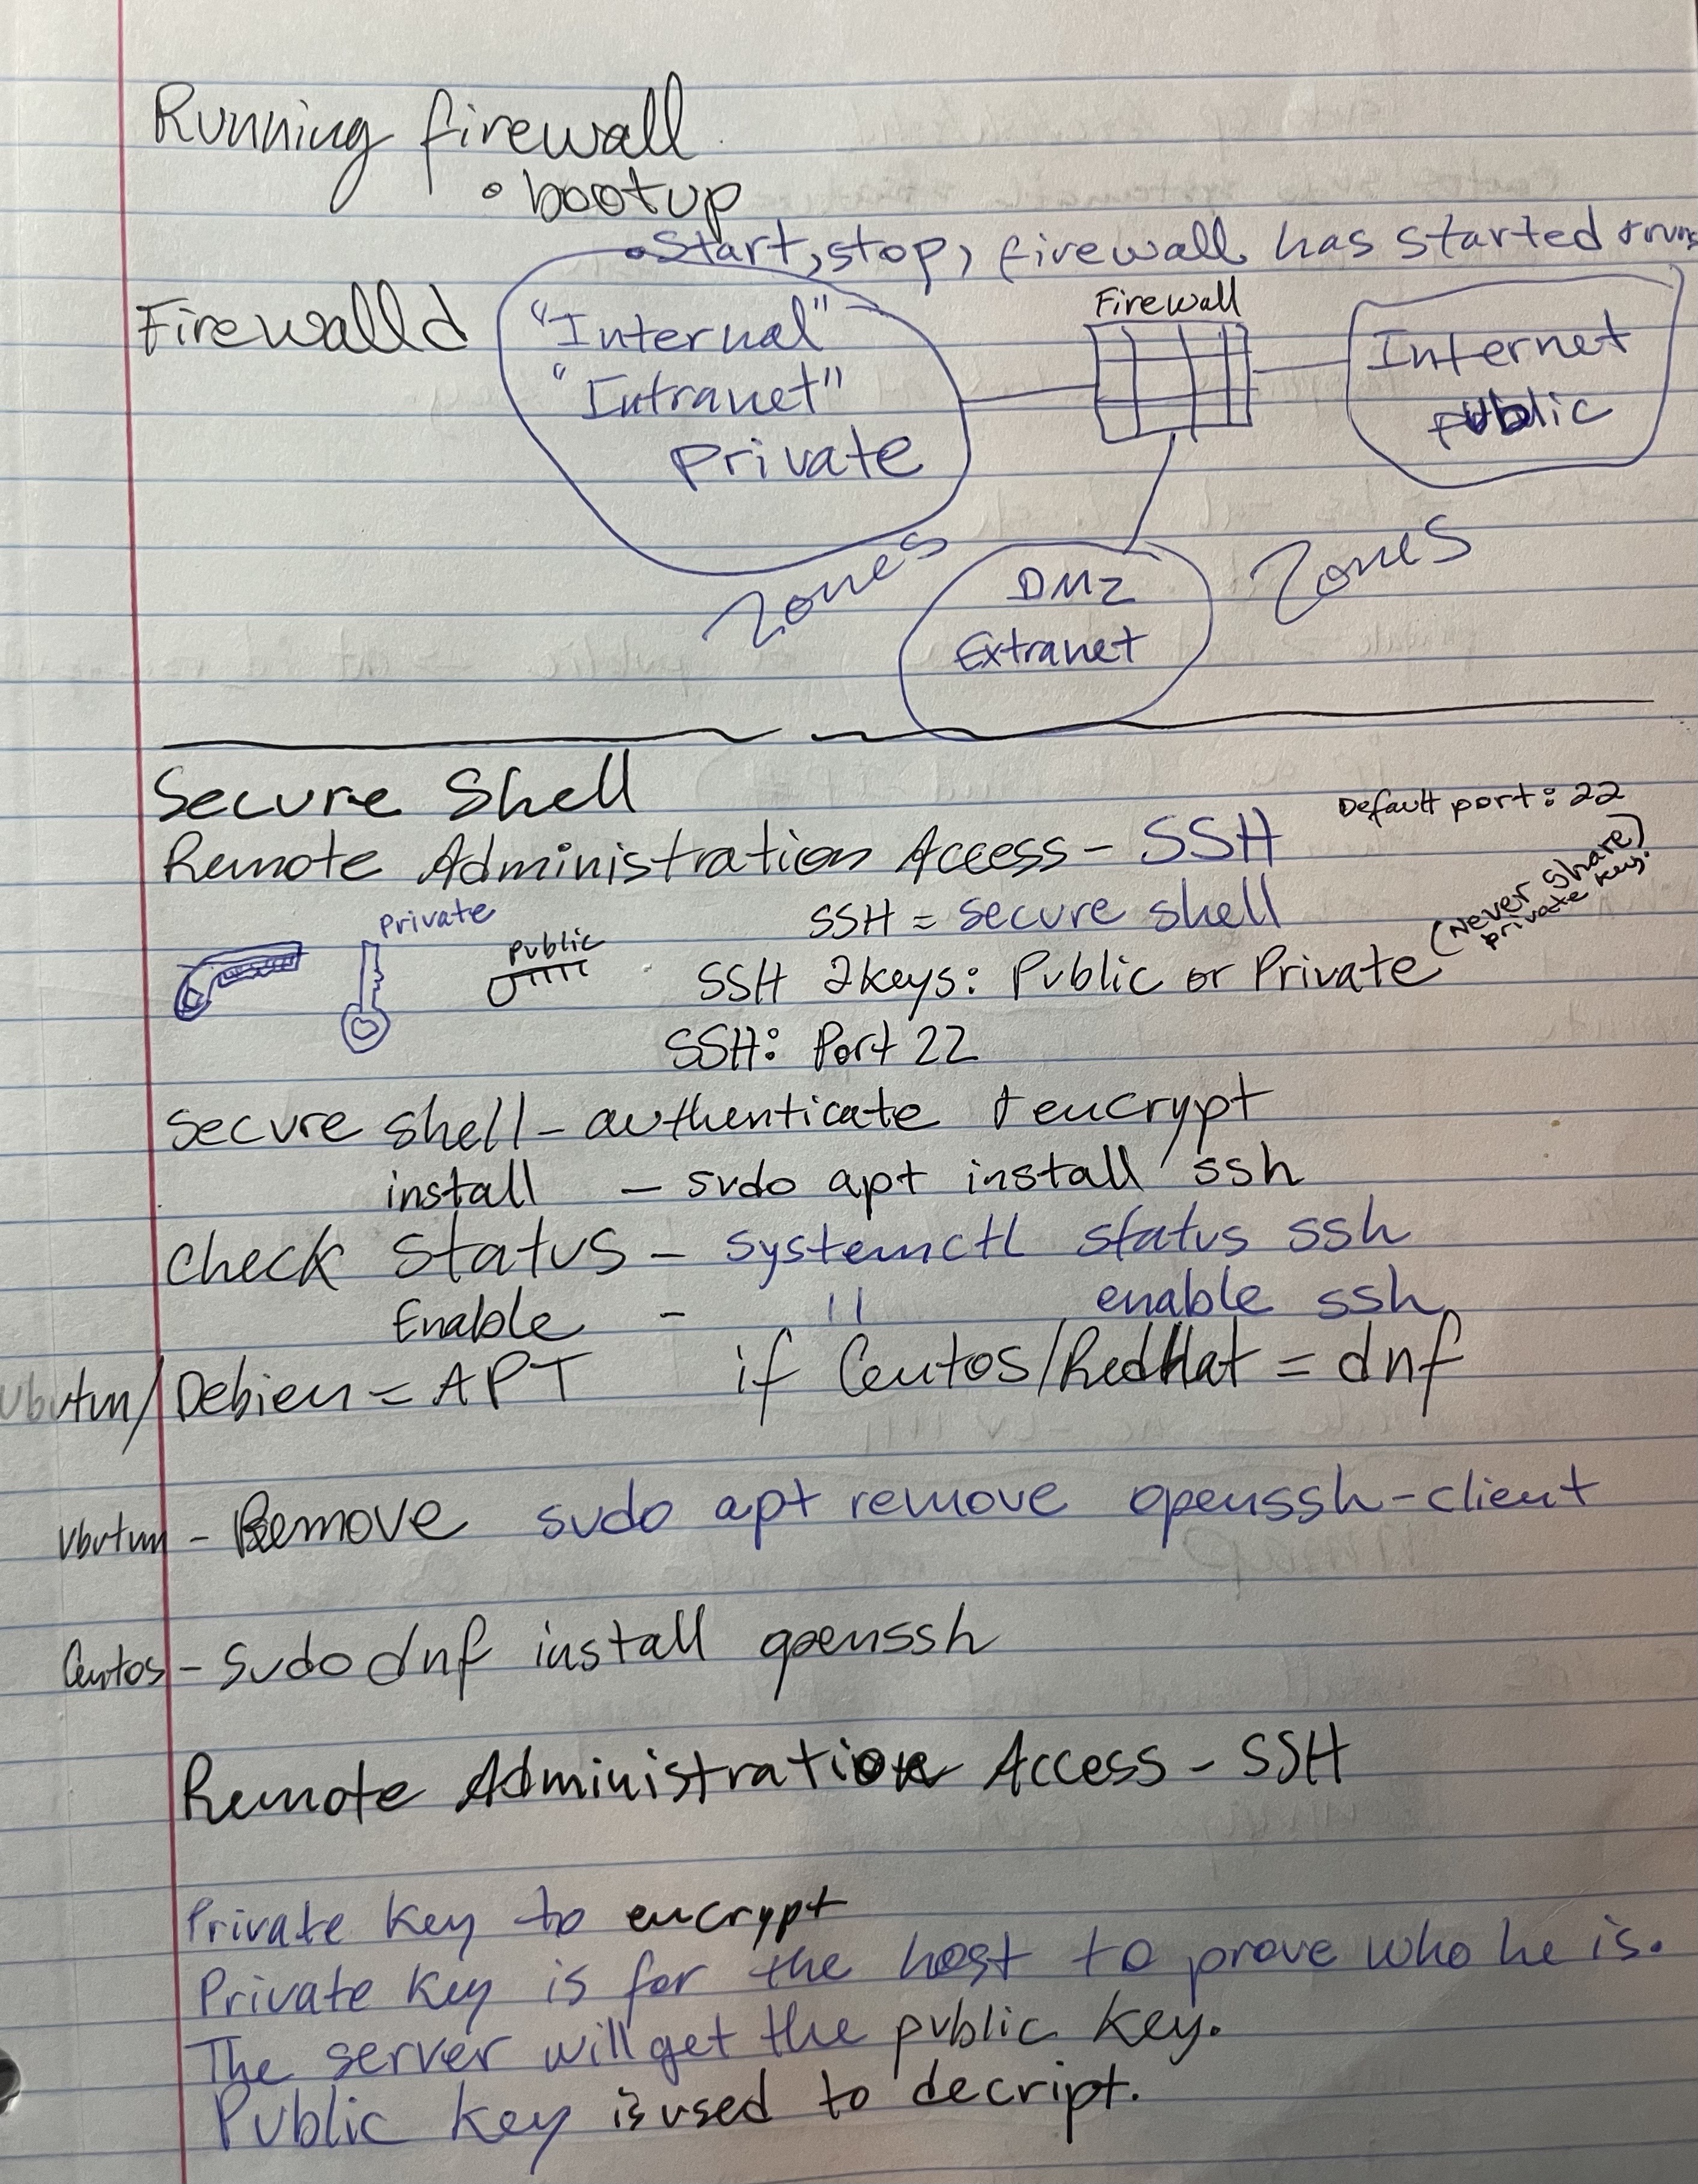 Running firewall
• bootup
• Start, stop, firewall has started & runs
Firewalld
"Internal"
"Intranet"
Private
Firewall
Internet
Public
Zones
DMZ
Extranet
Zones
Secure Shell
Default port: 22
Remote Administration Access - SSH
(Never share)
private key.
SSH = secure shell
Private
Public
SSH 2keys: Public or Private
SSH: Port 22
Secure shell - authenticate & encrypt
install - sudo apt install ssh
Check Status - systemctl status ssh
Enable - " enable ssh
Ubutun/Debien = APT if Centos/RedHat = dnf
Ubutun - Remove sudo apt remove openssh-client
Centos - Sudo dnf install openssh
Remote Administration Access - SSH
Private key to encrypt
Private key is for the host to prove who he is.
The server will get the public key.
Public key is used to decript.